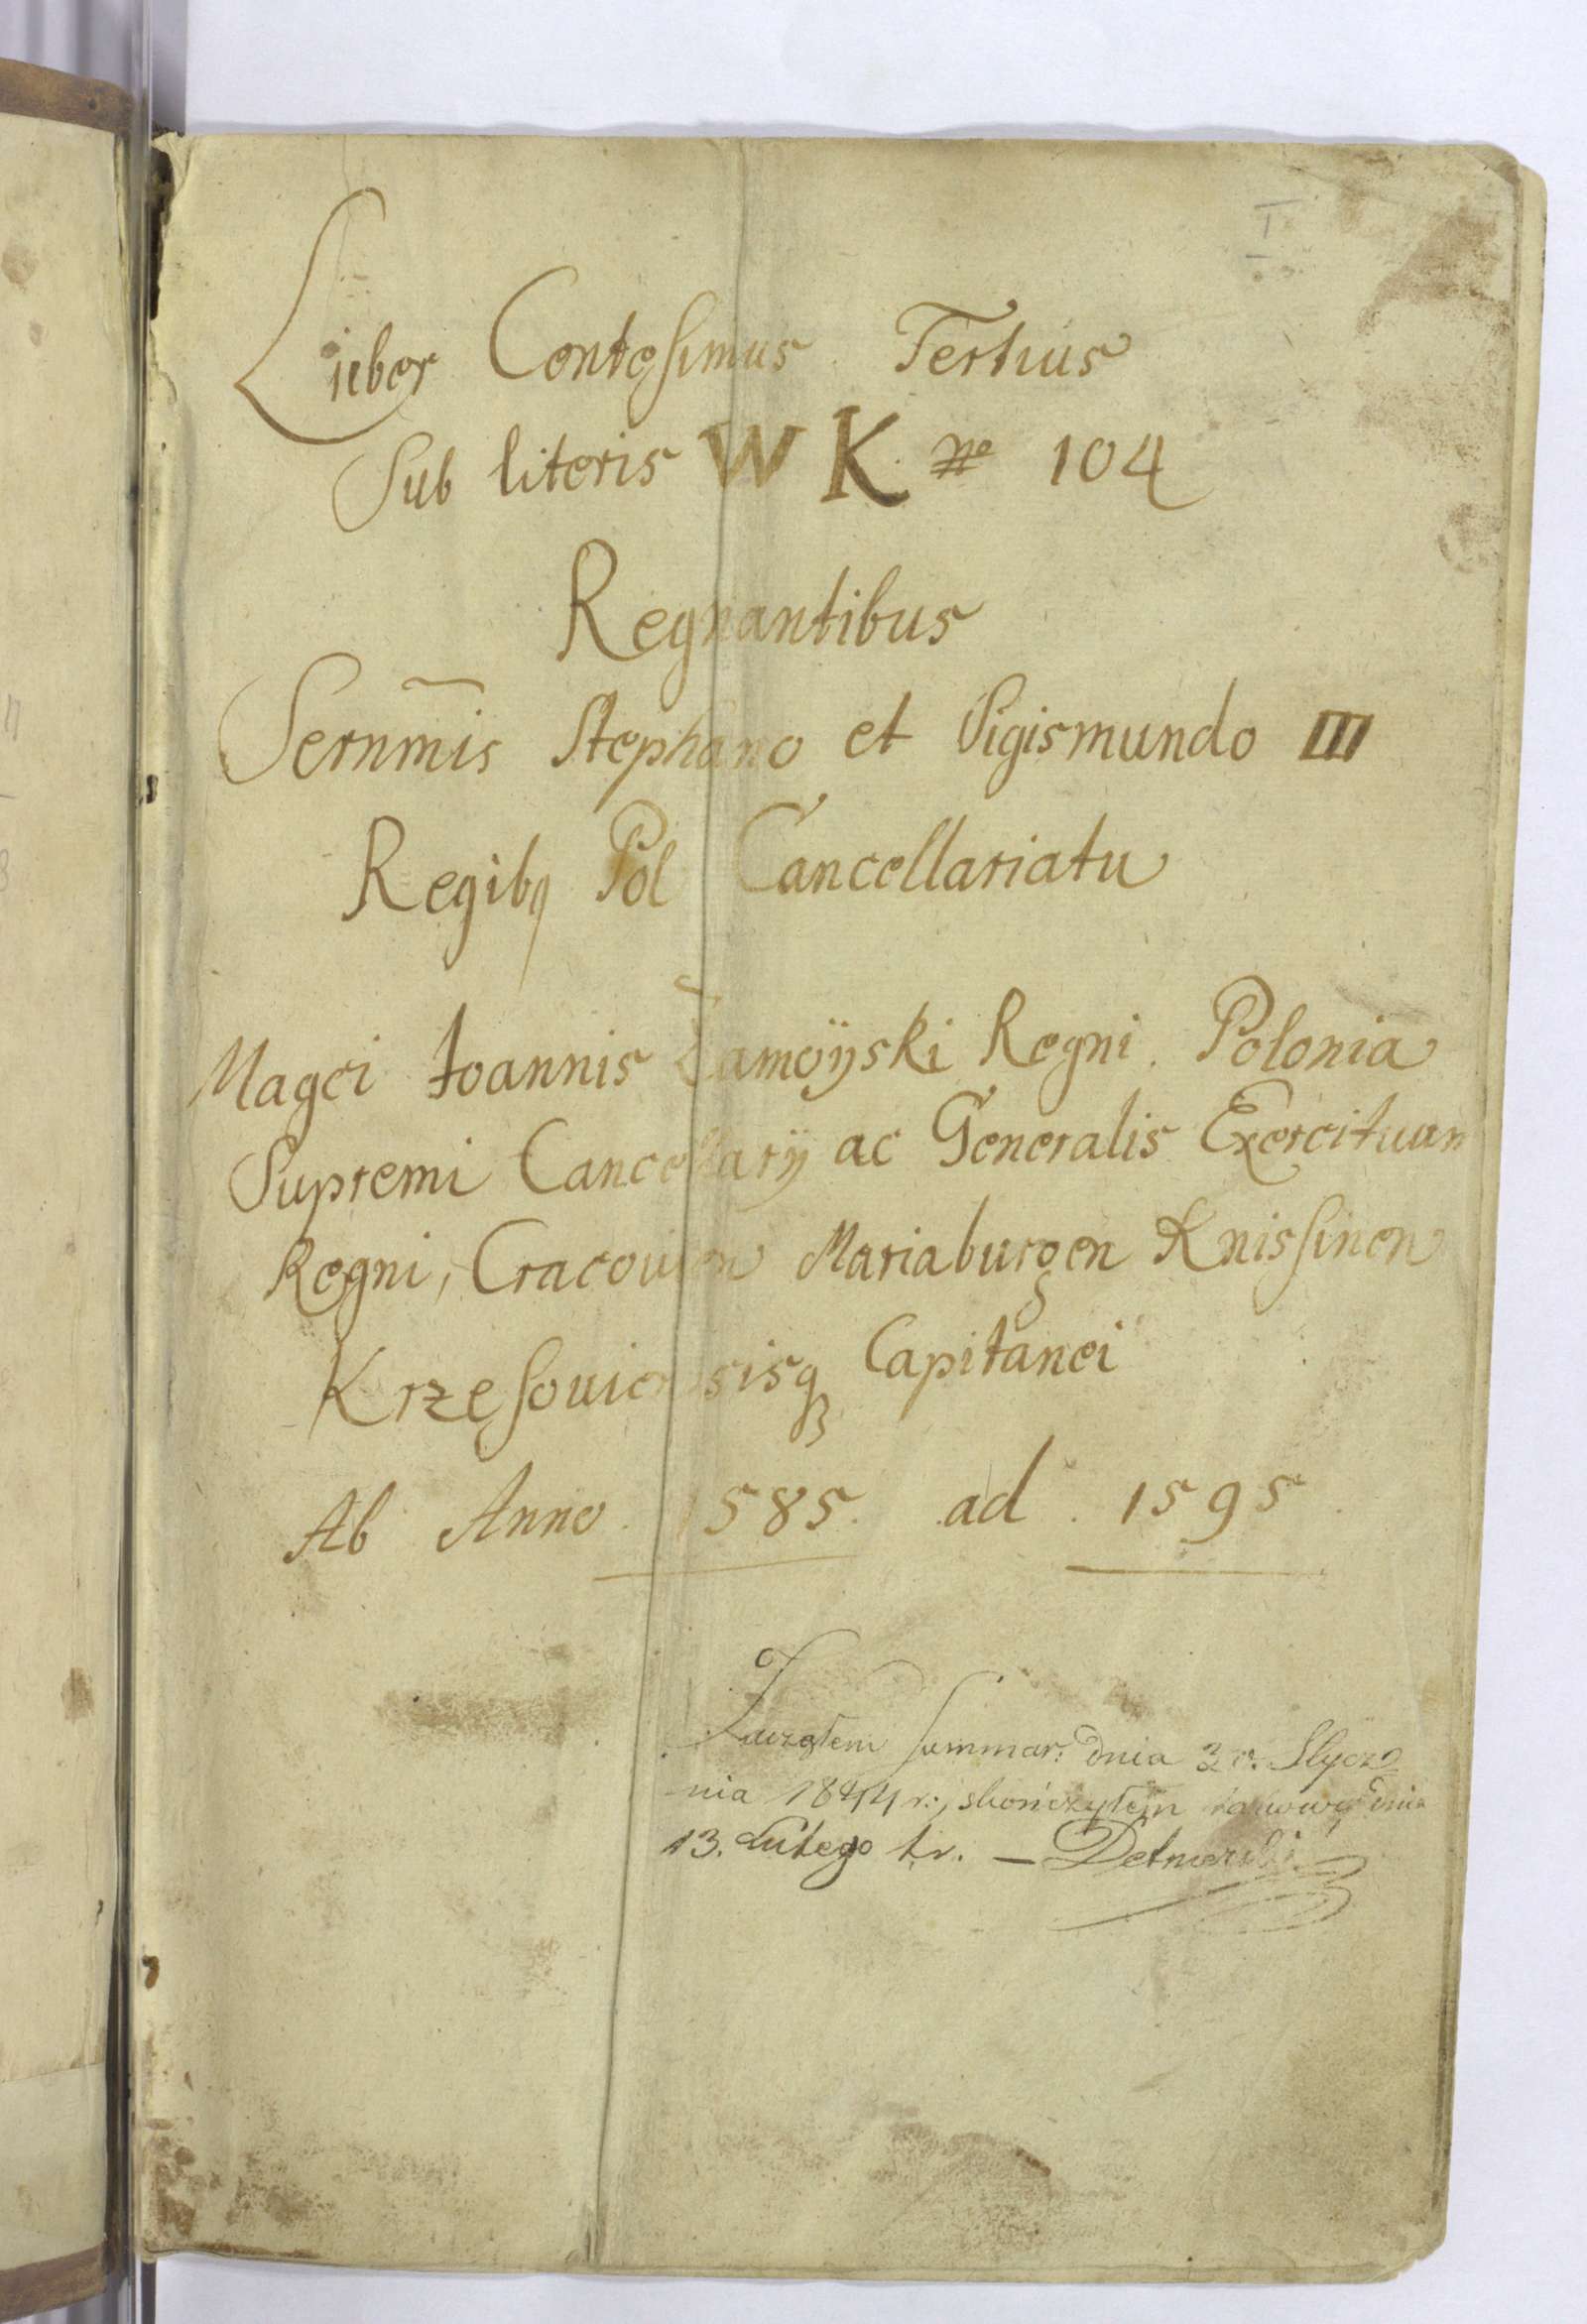 Lieber Centesimus Tertius
Sub literis W K No 104
Regnantibus
Sernmis Stephano et Sigismundo III
Regibq Pol Cancellariatu
Magci Ioannis Zamoÿski Regni Polonia
Supremi Cancellarÿ ac Generalis Exercituum
Regni, Cracovien Mariaburgen Knissinen
Krzesoviensisq Capitanei
Ab Anno 1585. ad 1595
Zacząłem summar: dnia 30. Stycz
nia 1844 r., skończyłem dnia
13. Lutego t.r. —